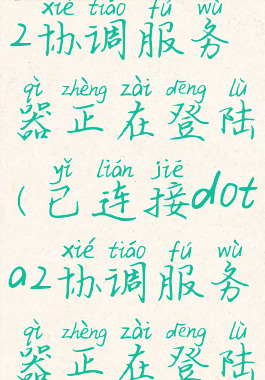 xié tiáo fú wù
2协调服务
qì zhèng zài dēng lù
器正在登陆
yǐ lián jiē
(已连接dot
xié tiáo fú wù
a2协调服务
qì zhèng zài dēng lù
器正在登陆